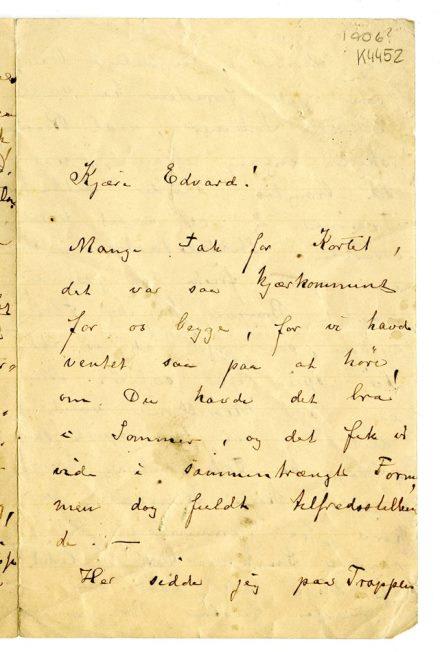 1906?
K4452
Kjære Edvard!
Mange Tak for Kortet,
det var saa kjærkomment
for os begge, for vi havde
ventet saa paa at höre,
om Du havde det bra
i Sommer, og det fik vi
vide i sammentrængte Form,
men dog fuldt tilfredsstillen
de. —
Her sidder jeg paa Trappen